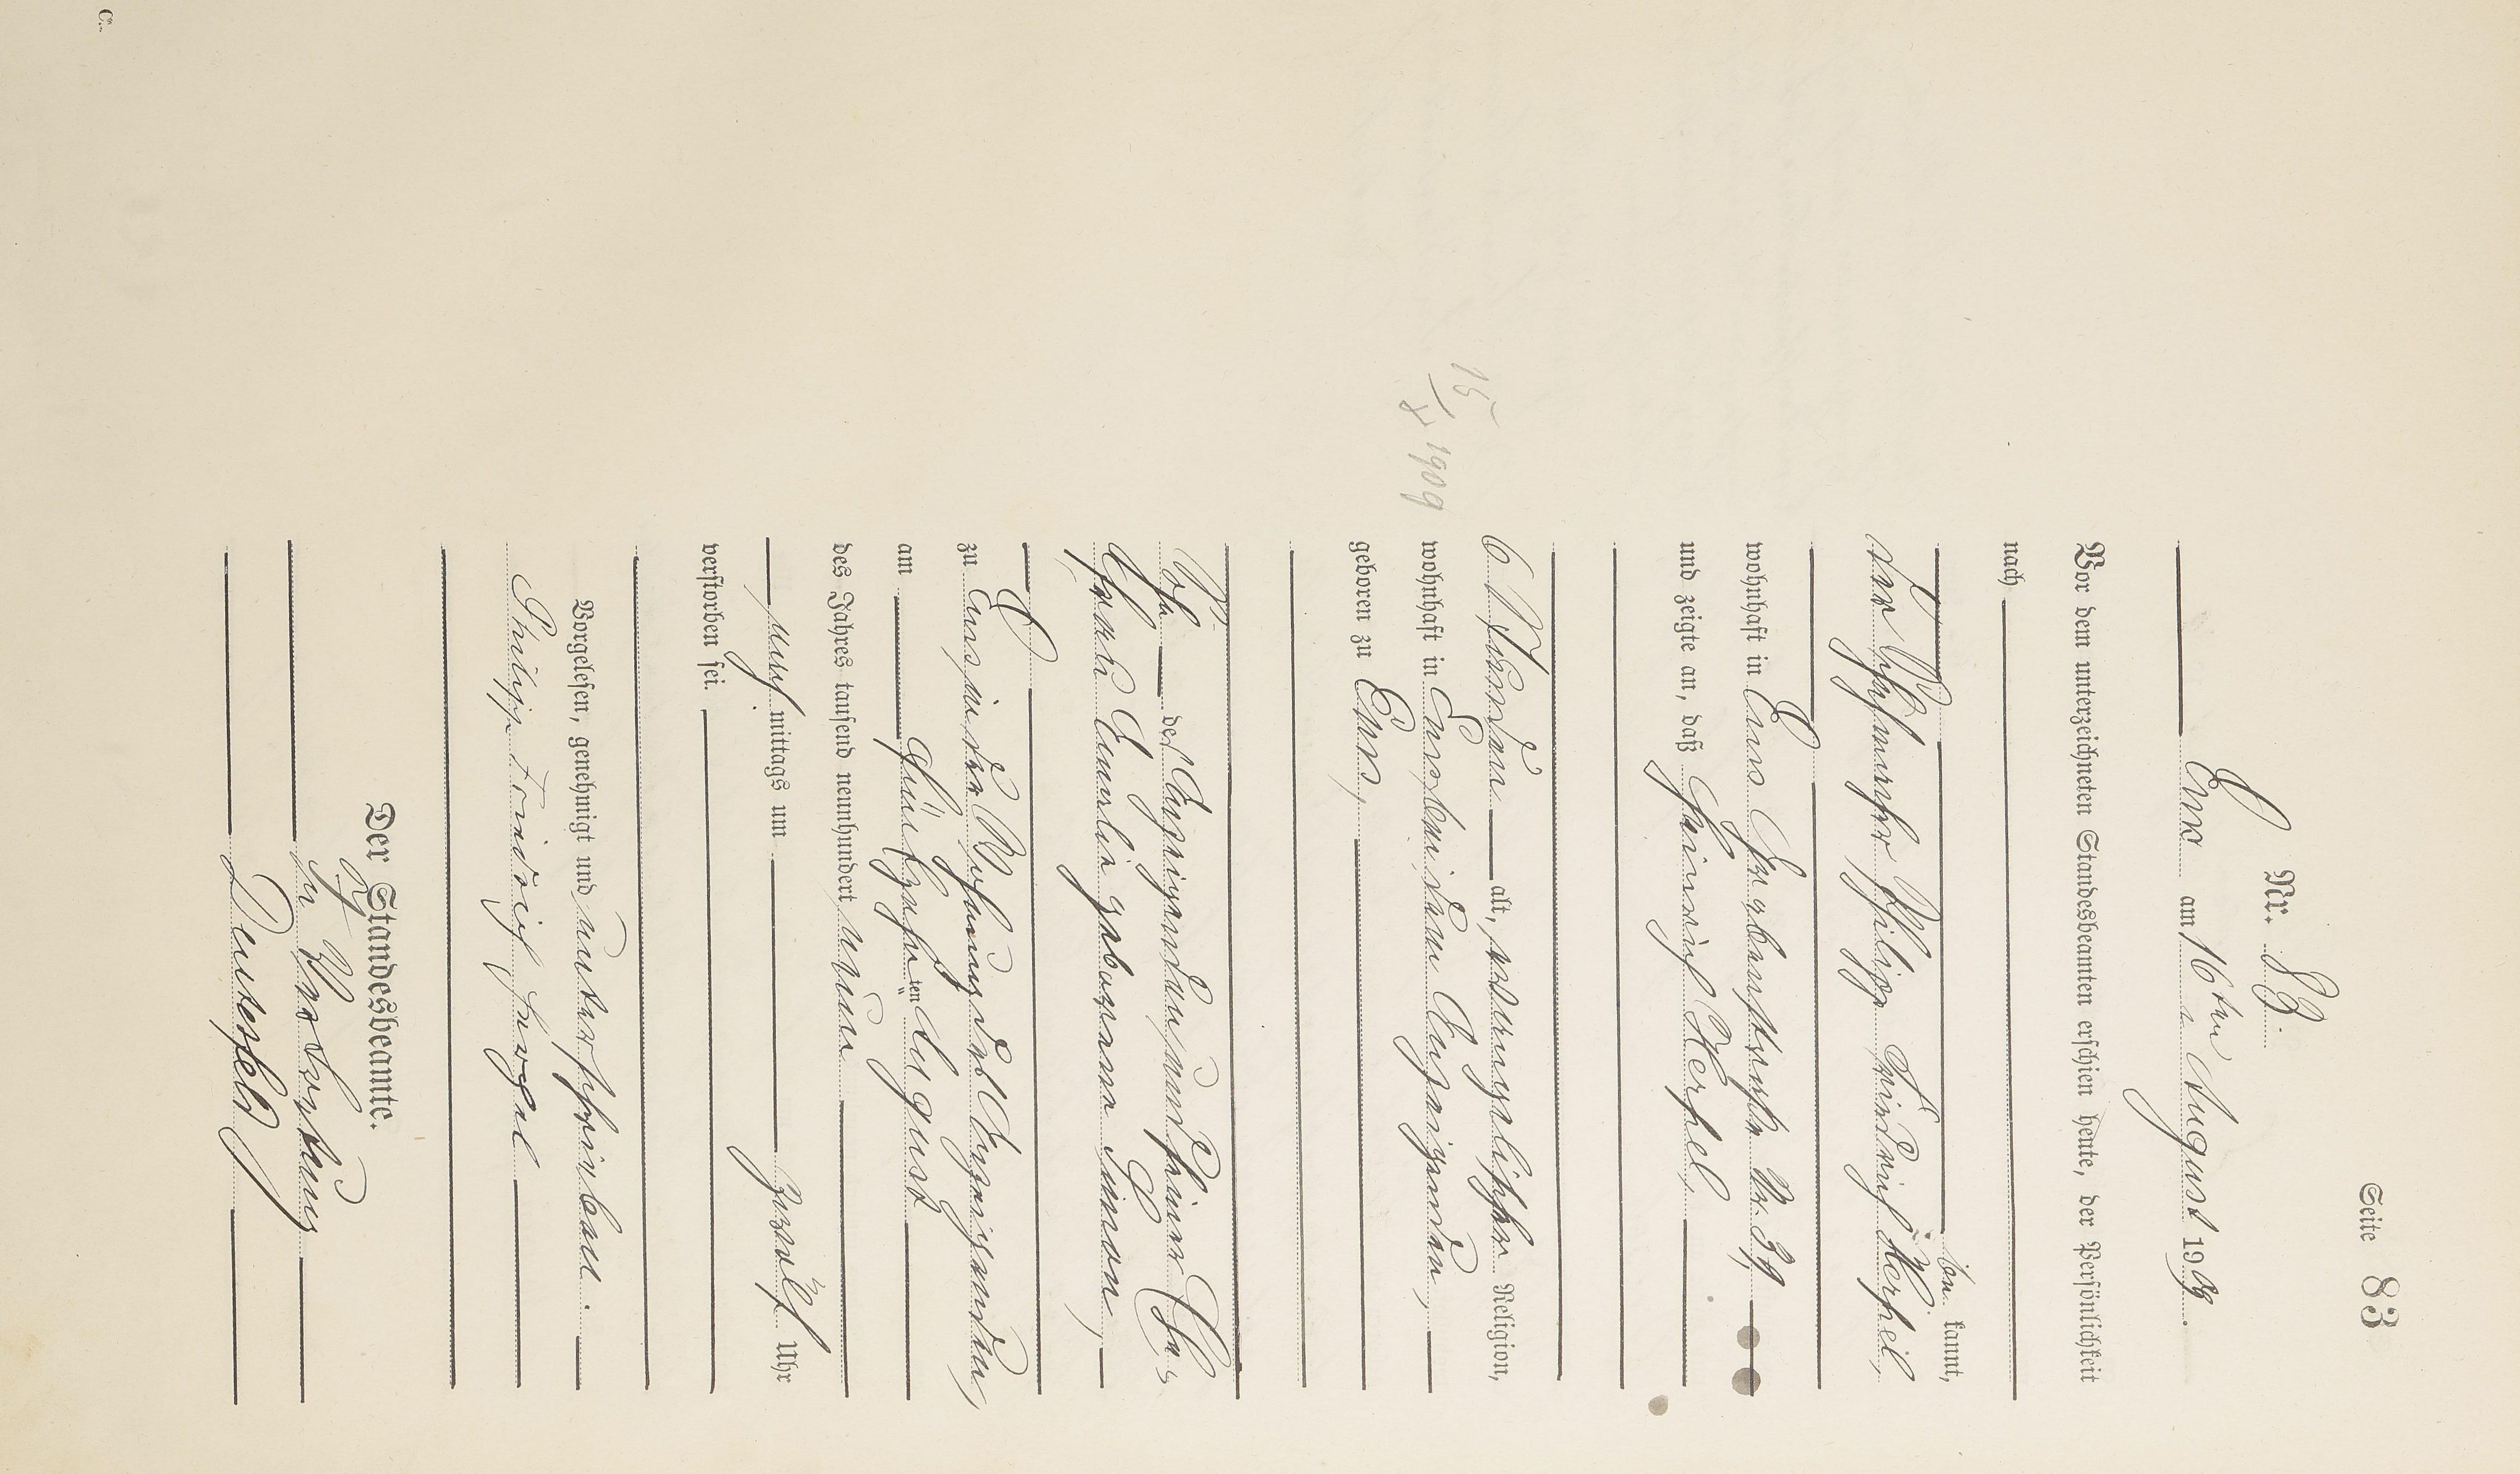 Seite 83
Nr. 83.
Ems am 16ten August 1909.
Vor dem unterzeichneten Standesbeamten erschien heute, der Persönlichkeit
nach
be kannt,
der Philipp Friedrich
wohnhaft in Ems Nr. 39
und zeigte an, daß Heinrich
6 Wochen alt, evangelischer Religion,
wohnhaft in Ems bei dem Anzeigenden,
geboren zu Ems,
Sohn des Anzeigenden und seiner Ehe
frau geborenen Simon,
zu Ems, in der Wohnung des Anzeigenden,
am fünfzehnten August
des Jahres tausend neunhundert neun
nach mittags um zwölf Uhr
verstorben sei.
Vorgelesen, genehmigt und unterschrieben.
Philipp Friedrich
Der Standesbeamte.
In Vertretung
15/8 1909
C.